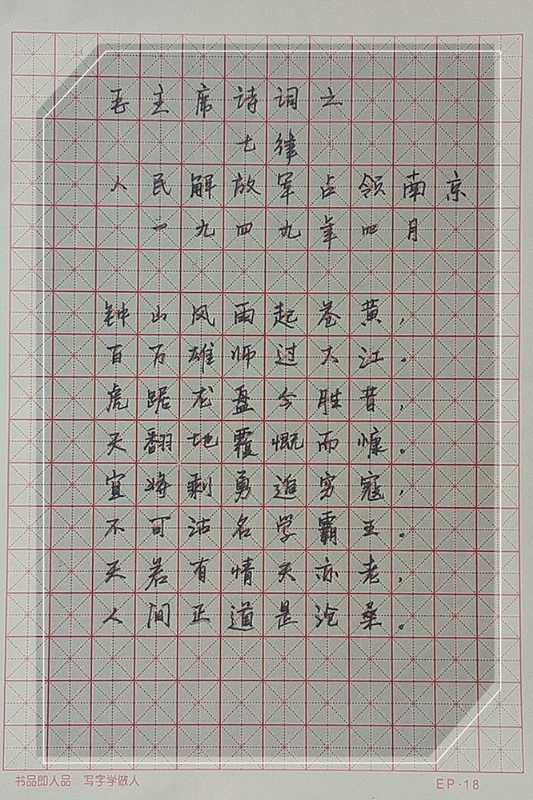 毛主席诗词之
七律
人民解放军占领南京
一九四九年四月
钟山风雨起苍黄，
百万雄师过大江。
虎踞龙盘今胜昔，
天翻地覆慨而慷。
宜将剩勇追穷寇，
不可沽名学霸王。
天若有情天亦老，
人间正道是沧桑。
书品即人品 写字学做人
EP-18